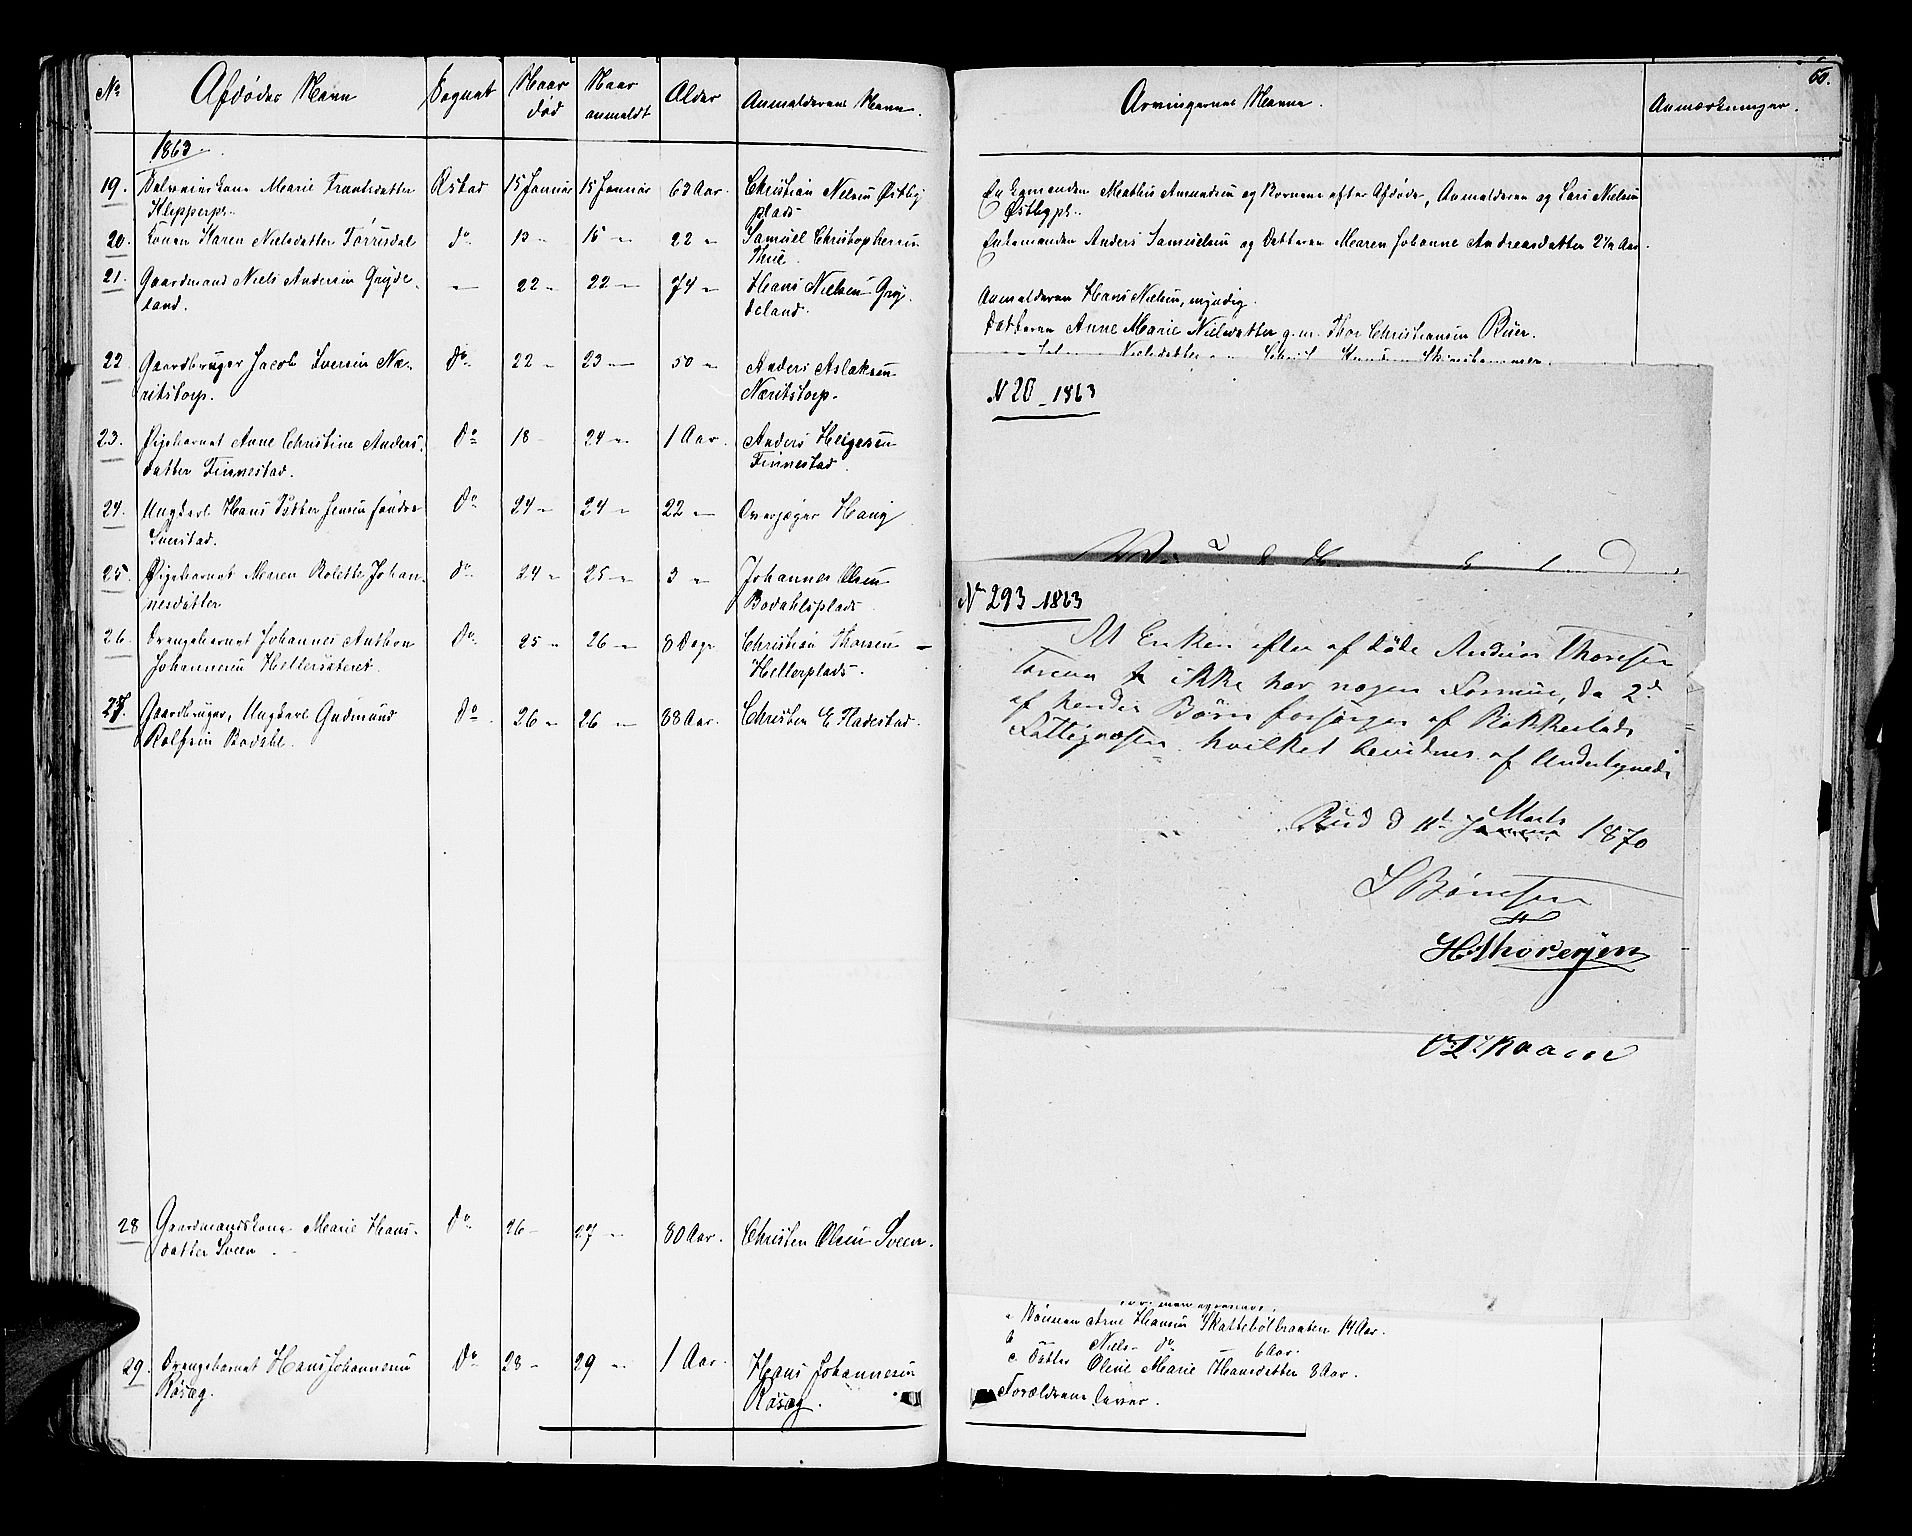 No Afdødes Navn Sognet Naar død Naar anmeldt Alder Anmelderens Navn.
1863
19. Marie Frantsdatter Østad 15 Januar 15 Januar 63 Aar. Christian Nielsen Østby
Klepperpl. plads
20. Konen Karen Nielsdatter Tørrisdal do 13 " 15 " 22 " Samuel Christophersen
Thue.
21. Gaardmand Niels Andersen Gryde- " 22 " 22 " 74 " Hans Nielsen Gry-
land. deland.
22 Gaardbruger Jacob Iversen Næ- do 22 " 23 " 50 " Anders Aslaksen
ritstorp. Næritstorp.
23. Pigebarnet Anne Christine Anders- do 18 " 24 " 1 Aar. Anders Helgesen
datter Finnestad. Finnestad.
24. Ungkarl Hans Petter Jensen Søndre do 24 " 24 " 22 " Overjæger Haug
Sønstad.
25. Pigebarnet Maren Rolette Johan- do 24 " 25 " 3 " Johannes Olsen
nesdatter Bodahlsplads.
26. Drengebarnet Johannes Anthon do 25 " 26 " 8 Dage Christian Thorsen
Johannesen Hellersæteret. Hellerplads.
27. Gaardbruger, Ungkarl Gudmund do 26 " 26 " 38 Aar. Christen E Hadestad.
Rolfsen Bodahl.
28 Gaardmandskone Marie Hans- do 26 " 27 " 80 Aar. Christen Olsen Sveen.
datter Sveen
29. Drengebarnet Hans Johannesen do 28 " 29 " 1 Aar. Hans Johannesen
Røsæg. Røsæg.
60.
Arvingernes Navne. Anmærkninger.
Enkemanden Mathis Amundsen og Børnene efter Afdøde, Anmelderen og Lars Nielsen
Østbypl.
Enkemanden Anders Samuelsen og Datteren Maren Johanne Andreasdatter 2 1/2 Aar.
Anmelderen Hans Nielsen, myndig.
Datteren Anne Marie Nielsdatter g.m. Thor Christiansen Buer.
N 20 - 1863
No 293 - 1863
At Enken efter afdøde Andreas Thoresen
ikke har nogen Formue, da 2de
af hendes Børn forsørges af Bakkestads
Fattigvæsen hvilket bevidnes af Undertegnede
Rud d 11te Januar Marts 1870
S Børresen
H Thoresen
Sønnen Arne Hansen Skattebølbraaten 14 Aar.
b Niels do 6 Aar.
c. Datter Oline Marie Hansdatter 8 Aar.
Forældrene lever.